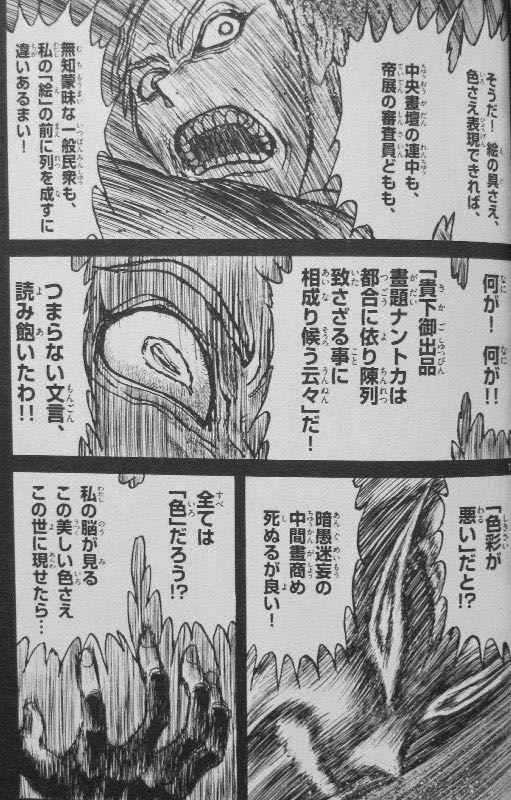 そうだ！絵の具さえ、
色さえ表現できれば、
中央畫壇の連中も、
帝展の審査員どもも、
無知蒙昧な一般民衆も、
私の「絵」の前に列を成すに
違いあるまい！
何が！何が!!
「貴下御出品
畫題ナントカは
都合に依り陳列
致さざる事に
相成り候う云々」だ！
つまらない文言、
読み飽いたわ!!
「色彩が
悪い」だと!?
暗愚迷妄の
中間畫商め
死ぬるが良い！
全ては
「色」だろう!?
私の脳が見る
この美しい色さえ
この世に現せたら…